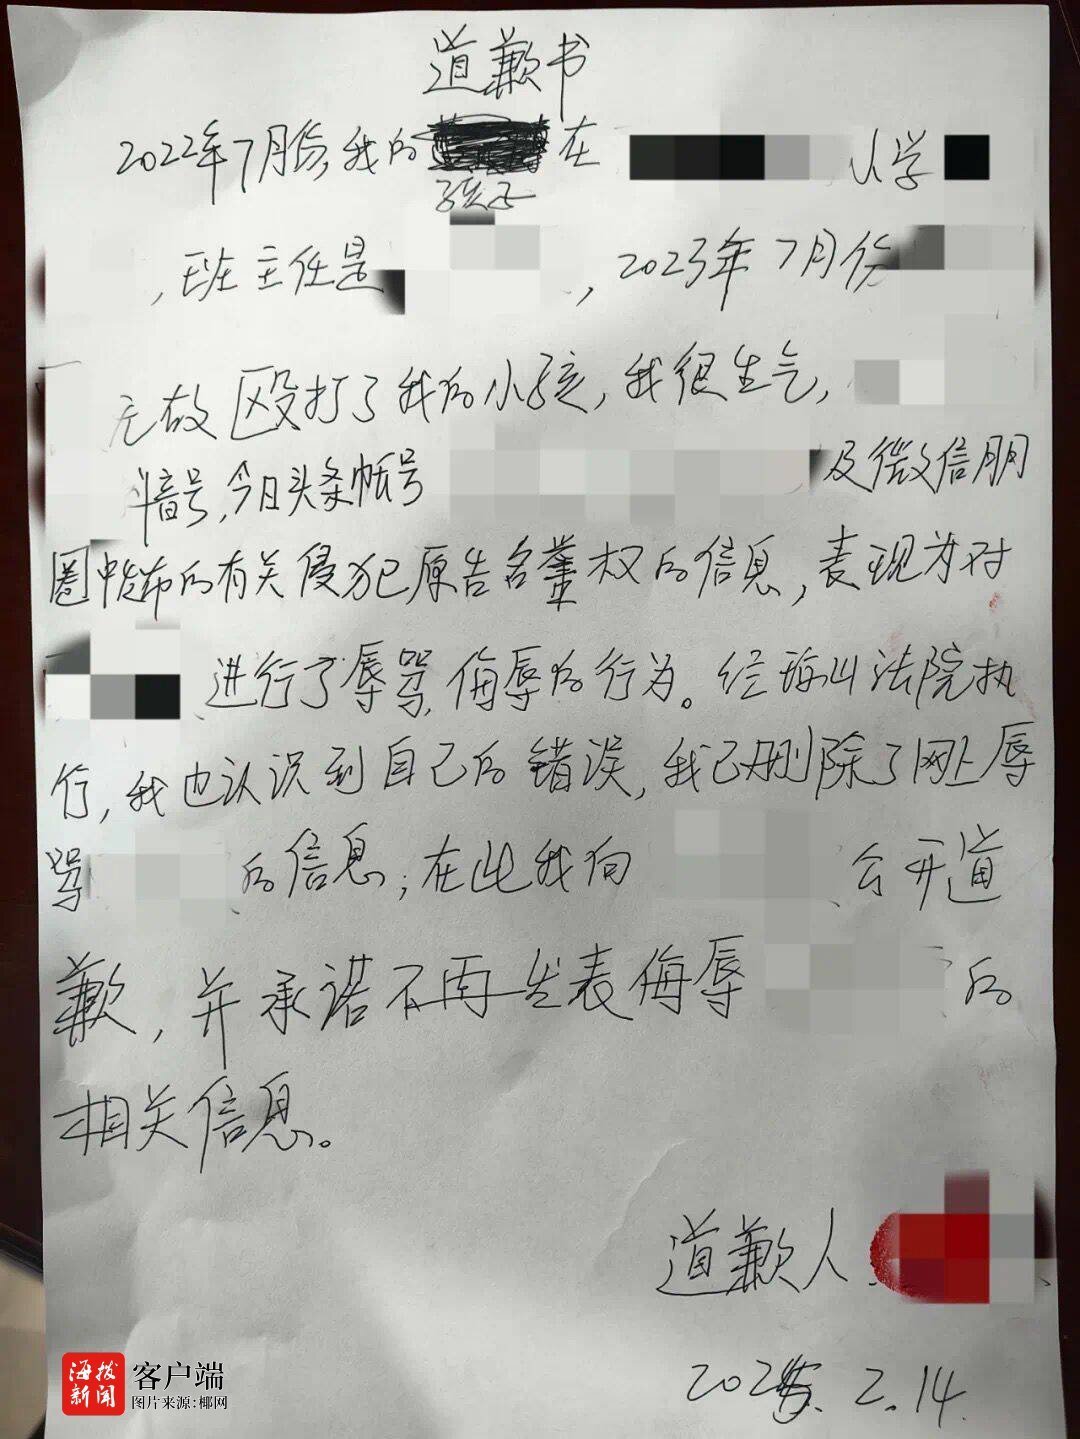 道歉书
2022年7月份,我的 在 小学
孩子
,班主任是 ,2023年7月份
无故殴打了我的小孩,我很生气,
抖音号,今日头条帐号 及微信朋
圈中发布的有关侵犯原告名誉权的信息,表现为对
进行了辱骂,侮辱的行为。经 法院执
行,我也认识到自己的错误,我已删除了网上辱
骂 的信息;在此我向 公开道
歉,并承诺不再发表侮辱 的
相关信息。
道歉人
2025.2.14
海拔新闻 客户端
图片来源:椰网